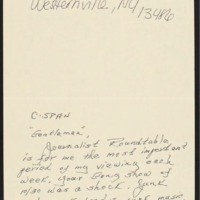 Westernville, NY
13486
C-SPAN
"Gentlemen",
Journalist Roundtable
is for me the most important
period of my viewing each
week. Your Gong show of
was a shock. Junk